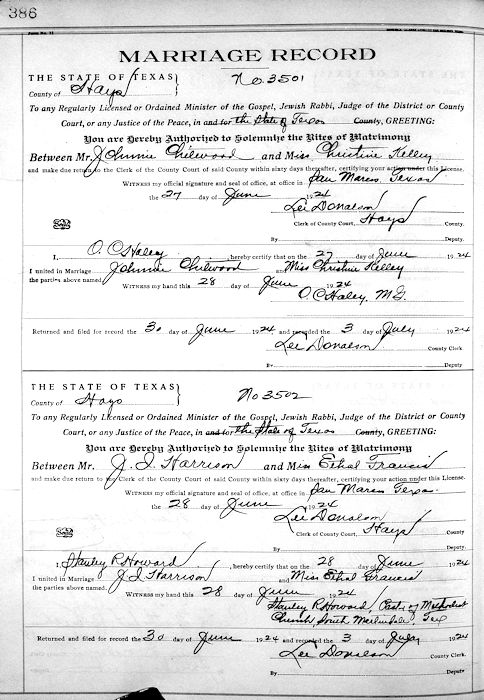 386
Form No. 11
MARRIAGE RECORD
THE STATE OF TEXAS}
County of Hays
No. 3501
To any Regularly Licensed or Ordained Minister of the Gospel, Jewish Rabbi, Judge of the District or County
Court, or any Justice of the Peace, in and for the State of Texas County, GREETING:
You are Hereby Authorized to Solemnize the Rites of Matrimony
Between Mr. Johnnie Chilwood and Miss Christine Kelley
and make due return to the Clerk of the County Court of said County within sixty days thereafter, certifying your action under this License.
WITNESS my official signature and seal of office, at office in San Marcos Texas
the 27 day of June 1924
Lee Donalson
Clerk of County Court, Hays County.
By Deputy.
I, O. C. Haley, hereby certify that on the 27 day of June 1924
I united in Marriage Johnnie Chilwood and Miss Christine Kelley
the parties above named.
WITNESS my hand this 28 June 1924
O. C. Haley, M.G.
Returned and filed for record the 30 day of June 1924, and recorded the 3 day of July 1924
Lee Donalson County Clerk.
By Deputy
THE STATE OF TEXAS}
County of Hays
No 3502
To any Regularly Licensed or Ordained Minister of the Gospel, Jewish Rabbi, Judge of the District or County
Court, or any Justice of the Peace, in and for the State of Texas County, GREETING:
You are Hereby Authorized to Solemnize the Rites of Matrimony
Between Mr. J. I. Harrison and Miss Ethel Francis
and make due return to the Clerk of the County Court of said County within sixty days thereafter, certifying your action under this License.
WITNESS my official signature and seal of office, at office in San Marcos Texas
the 28 day of June 1924
Lee Donalson
Clerk of County Court, Hays County
By Deputy.
I, Stanley R. Howard, hereby certify that on the 28 day of June 1924
I united in Marriage J. I. Harrison and Miss Ethel Francis
the parties above named.
WITNESS my hand this 28 June 1924
Stanley R. Howard, Pastor of Methodist
Church South Tex
Returned and filed for record the 30 day of June 1924 and recorded the 3 day of July 1924
Lee Donalson County Clerk.
By Deputy